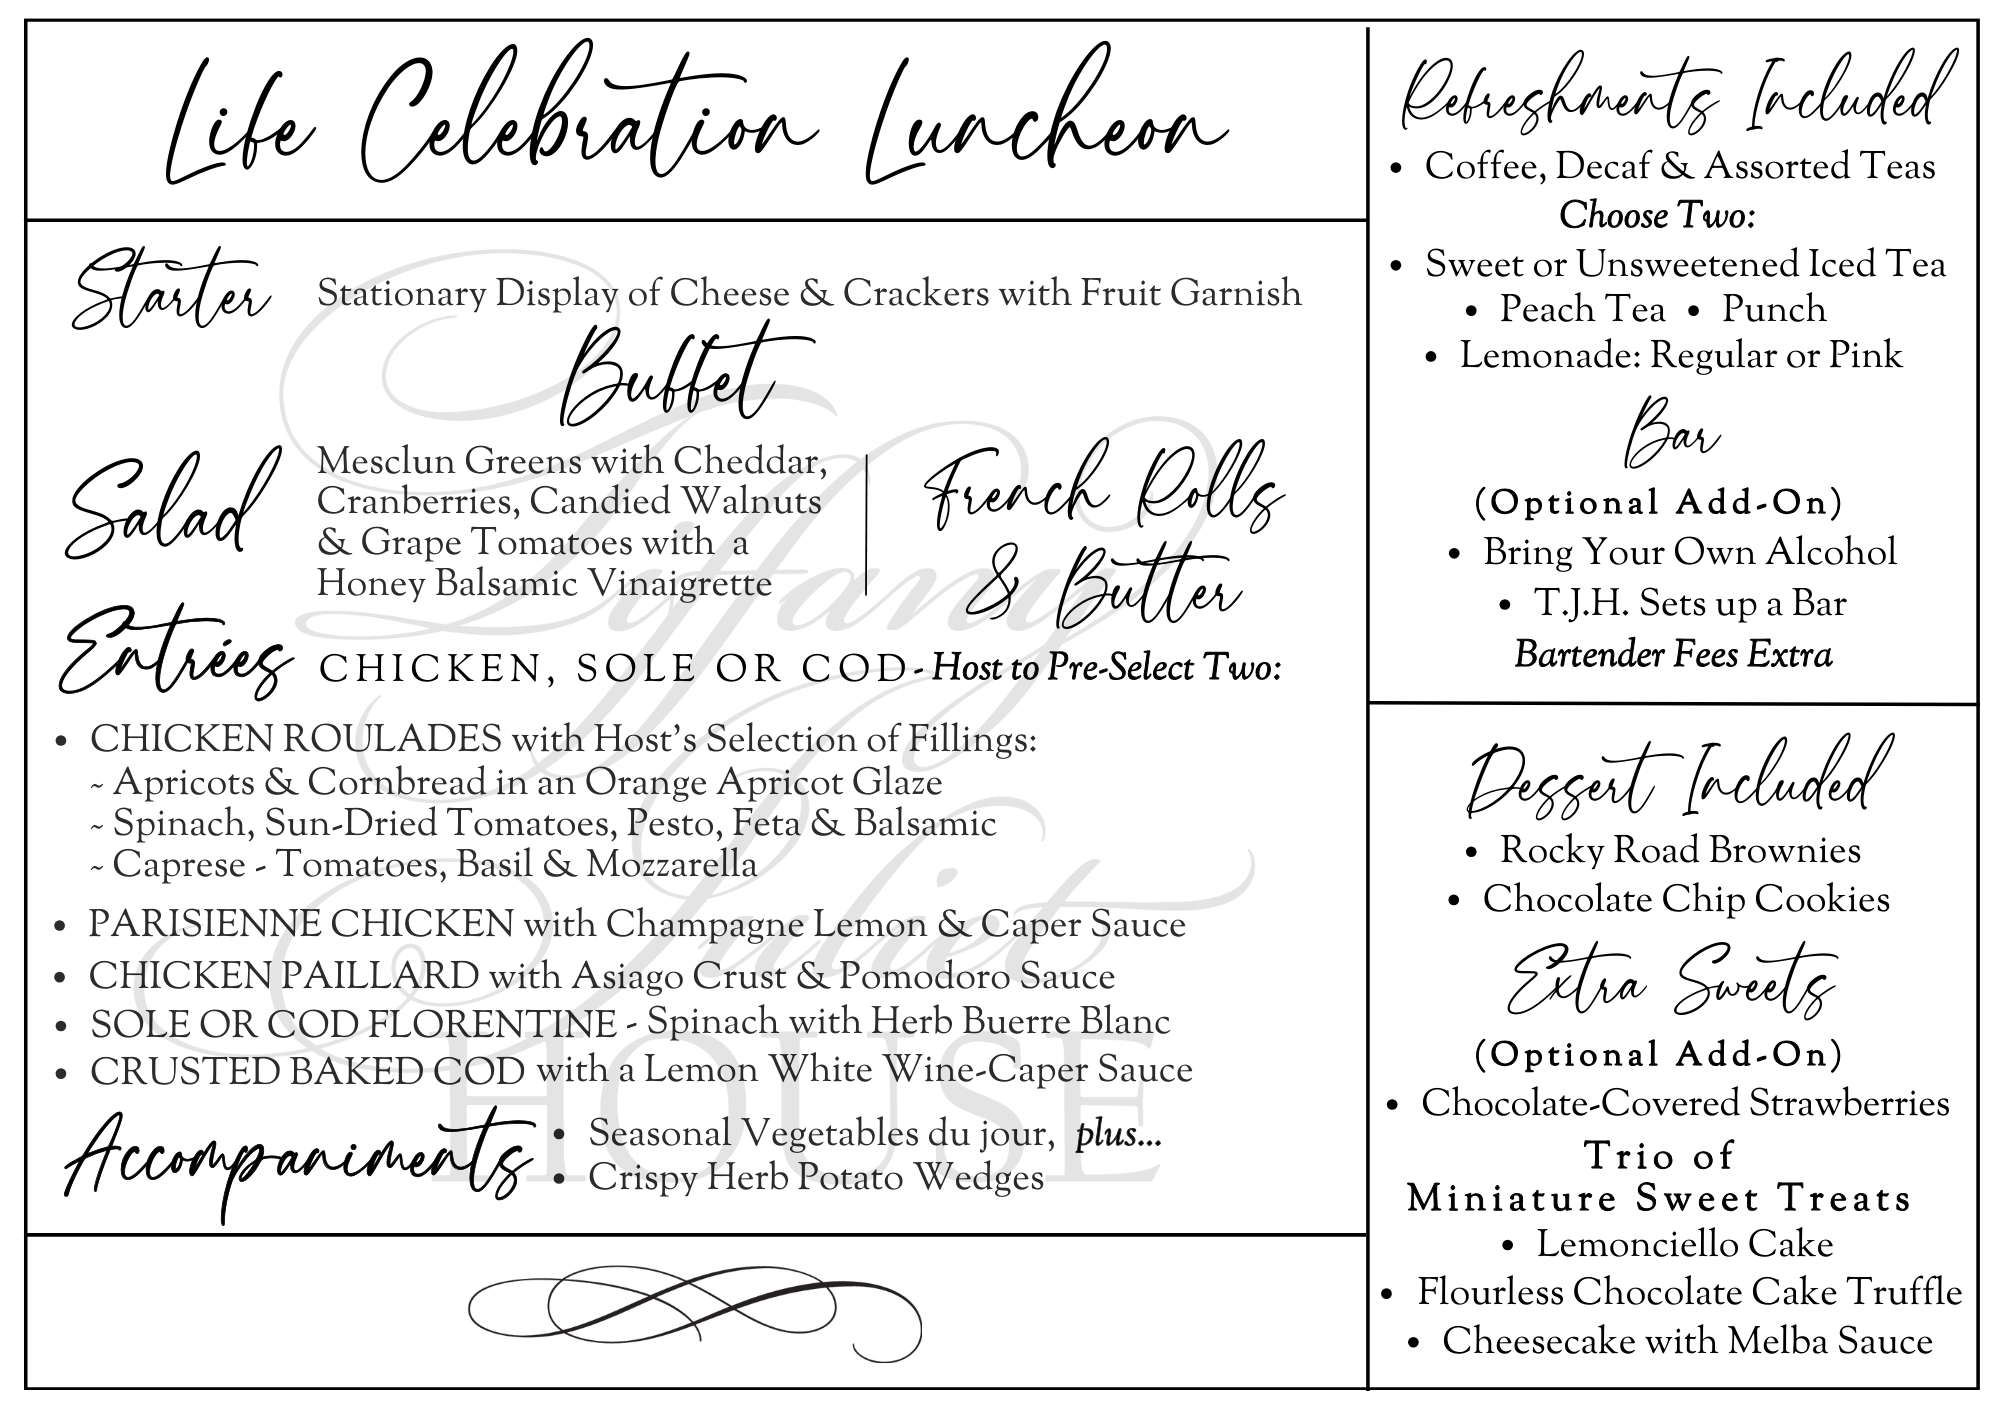 Life Celebration Luncheon
Starter
Stationary Display of Cheese & Crackers with Fruit Garnish
Buffet
Salad
Mesclun Greens with Cheddar,
Cranberries, Candied Walnuts
& Grape Tomatoes with a
Honey Balsamic Vinaigrette
French Rolls
& Butter
Entrées
CHICKEN, SOLE OR COD - Host to Pre-Select Two:
• CHICKEN ROULADES with Host's Selection of Fillings:
~ Apricots & Cornbread in an Orange Apricot Glaze
~ Spinach, Sun-Dried Tomatoes, Pesto, Feta & Balsamic
~ Caprese - Tomatoes, Basil & Mozzarella
• PARISIENNE CHICKEN with Champagne Lemon & Caper Sauce
• CHICKEN PAILLARD with Asiago Crust & Pomodoro Sauce
• SOLE OR COD FLORENTINE - Spinach with Herb Buerre Blanc
• CRUSTED BAKED COD with a Lemon White Wine-Caper Sauce
Accompaniments
• Seasonal Vegetables du jour, plus...
• Crispy Herb Potato Wedges
Tiffany
Juliet
HOUSE
Refreshments Included
• Coffee, Decaf & Assorted Teas
Choose Two:
• Sweet or Unsweetened Iced Tea
• Peach Tea • Punch
• Lemonade: Regular or Pink
Bar
(Optional Add-On)
• Bring Your Own Alcohol
• T.J.H. Sets up a Bar
Bartender Fees Extra
Dessert Included
• Rocky Road Brownies
• Chocolate Chip Cookies
Extra Sweets
(Optional Add-On)
• Chocolate-Covered Strawberries
Trio of
Miniature Sweet Treats
• Lemonciello Cake
• Flourless Chocolate Cake Truffle
• Cheesecake with Melba Sauce